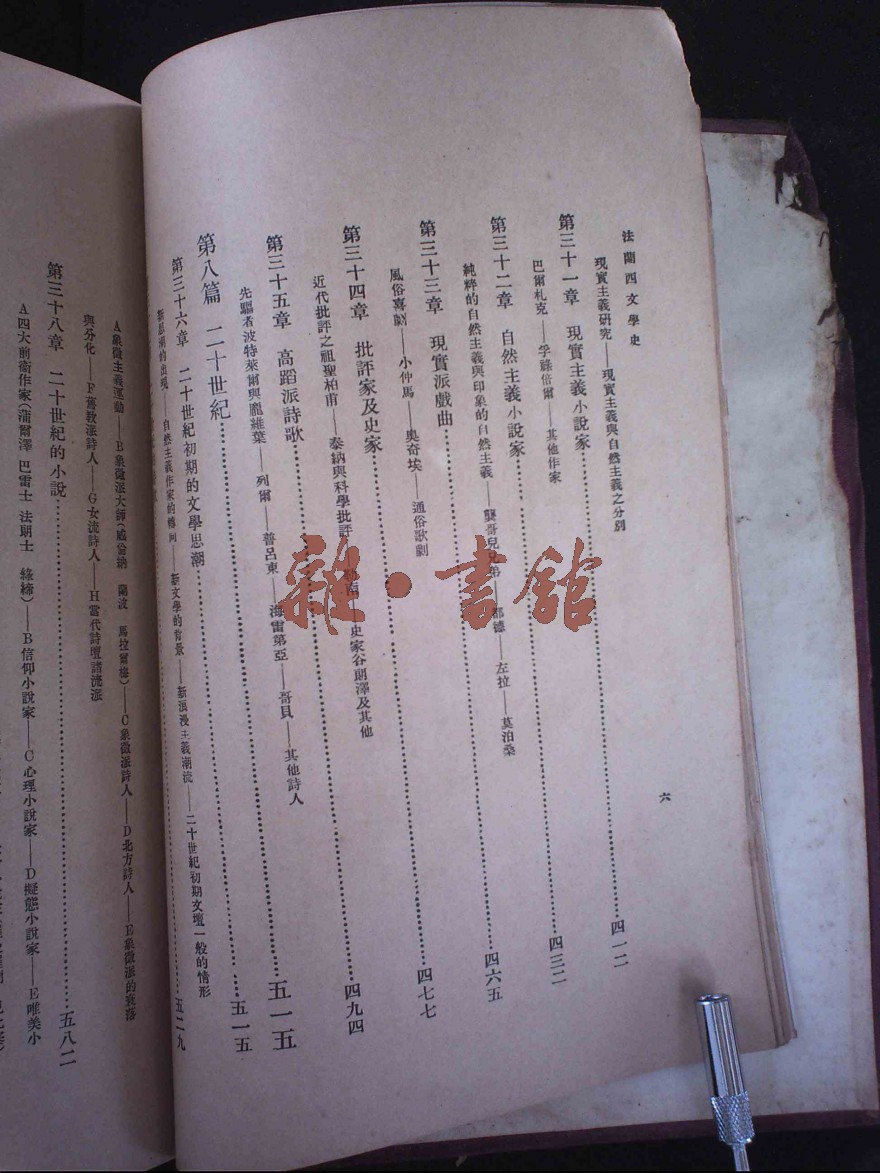 法蘭西文學史
六
現實主義研究——現實主義與自然主義之分別
第三十一章 現實主義小說家……四一二
巴爾札克——孚祿倍爾——其他作家
第三十二章 自然主義小說家……四三二
純粹的自然主義與印象的自然主義——龔哥兒兄弟——都德——左拉——莫泊桑
第三十三章 現實派戲曲……四六五
風俗喜劇——小仲馬——奧奇埃——通俗歌劇
第三十四章 批評家及史家……四七七
近代批評之祖聖柏甫——泰納與科學批評——勒南——史家谷朗澤及其他
第三十五章 高蹈派詩歌……四九四
先驅者波特萊爾與龐維葉——列爾——普呂東——海雷第亞——哥貝——其他詩人
第八篇 二十世紀……五一五
第三十六章 二十世紀初期的文學思潮……五一五
新思潮的出現——自然主義作家的轉向——新文學的背景——新浪漫主義潮流——二十世紀初期文壇一般的情形
五二九
A象徵主義運動——B象徵派大師(威侖納 蘭波 馬拉爾梅)——C象徵派詩人——D北方詩人——E象徵派的衰落
與分化——F舊教派詩人——G女流詩人——H當代詩壇諸流派
第三十八章 二十世紀的小說……五八二
A四大前衛作家(蒲爾澤 巴雷士 法朗士 綠締)——B信仰小說家——C心理小說家——D擬態小說家——E唯美小
雜·書館